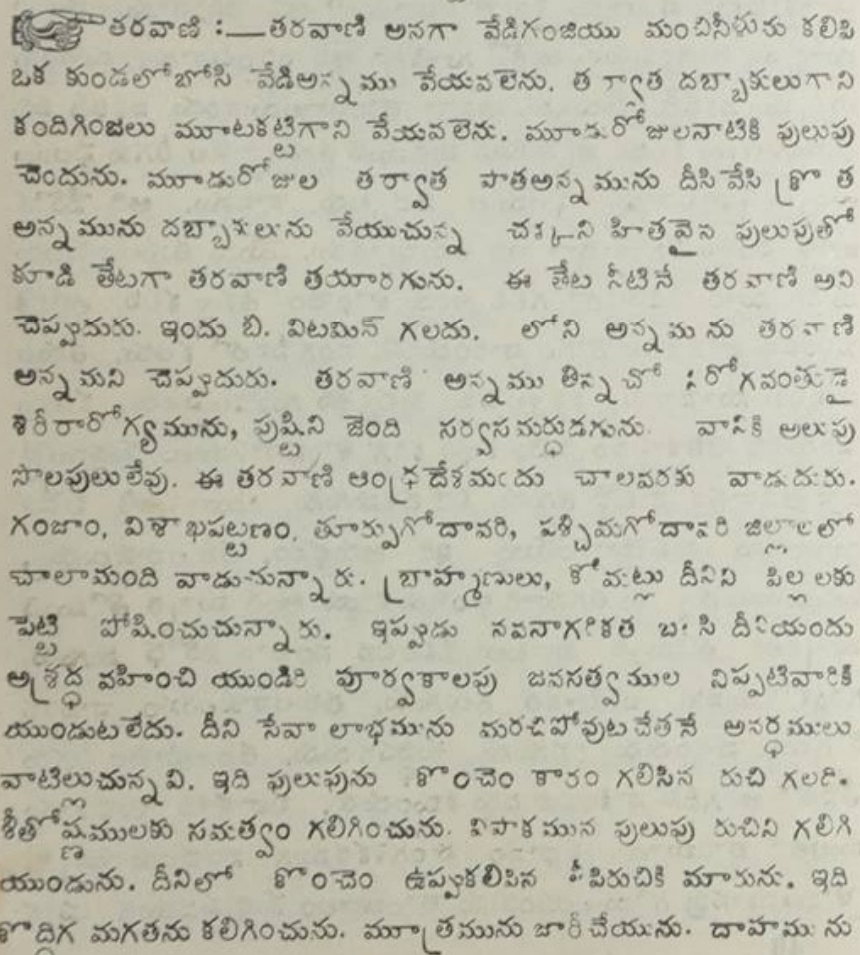 తరవాణి :—తరవాణి అనగా వేడిగంజియు మంచినీళును కలిపి
ఒక కుండలోబోసి వేడిఅన్నము వేయవలెను. తర్వాత దబ్బాకులుగాని
కందిగింజలు మూటకట్టిగాని వేయవలెను. మూడురోజులనాటికి పులుపు
చెందును. మూడురోజుల తర్వాత పాతఅన్నమును దీసివేసి క్రొత్త
అన్నమును దబ్బాకులును వేయుచున్న చక్కని హితవైన పులుపుతో
కూడి తేటగా తరవాణి తయారగును. ఈ తేట నీటినే తరవాణి అని
చెప్పుదురు. ఇందు బి. విటమిన్ గలదు. లోని అన్నమును తరవాణి
అన్నమని చెప్పుదురు. తరవాణి అన్నము తిన్నచో నిరోగవంతుడై
శరీరారోగ్యమును, పుష్టిని జెంది సర్వసమర్ధుడగును. వానికి అలుపు
సొలపులు లేవు. ఈ తరవాణి ఆంధ్రదేశమందు చాలవరకు వాడుదురు.
గంజాం, విశాఖపట్టణం, తూర్పుగోదావరి, పశ్చిమగోదావరి జిల్లాలలో
చాలామంది వాడుచున్నారు. బ్రాహ్మణులు, కోమట్లు దీనిని పిల్లలకు
పెట్టి పోషించుచున్నారు. ఇప్పుడు నవనాగరికత బలిసి దీనియందు
అశ్రద్ధ వహించి యుండిరి పూర్వకాలపు జనసత్వముల నిప్పటివారికి
యుండుట లేదు. దీని సేవా లాభమును మరచిపోవుట చేతనే అనర్ధములు
వాటిల్లుచున్నవి. ఇది పులుపును కొంచెం కారం గలిసిన రుచి గలది.
శీతోష్ణములకు సమత్వం గలిగించును. విపాకమున పులుపు రుచిని గలిగి
యుండును. దీనిలో కొంచెం ఉప్పుకలిపిన తీపిరుచికి మారును. ఇది
కొద్దిగ మగతను కలిగించును. మూత్రమును జారీచేయును. దాహమును